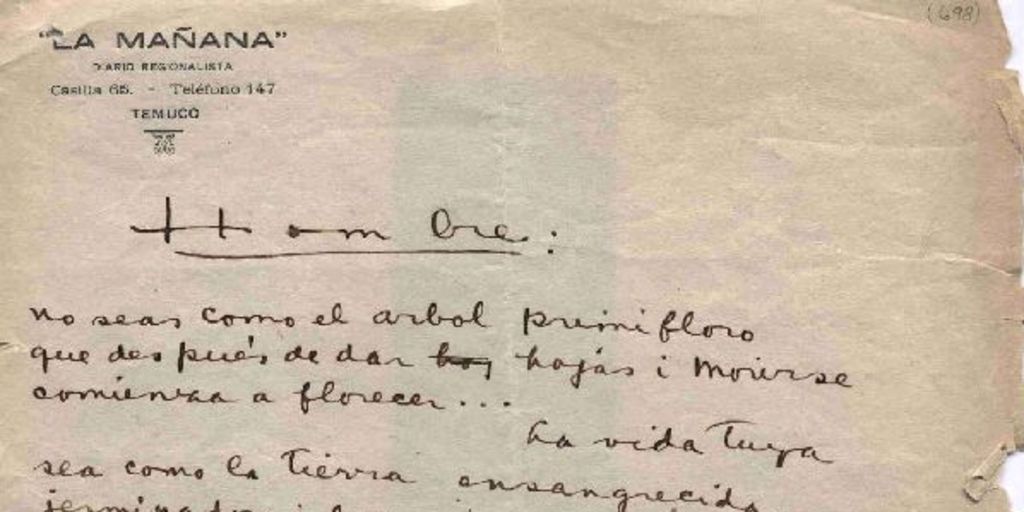 (698)
"LA MAÑANA"
DIARIO REGIONALISTA
Casilla 65. - Teléfono 147
TEMUCO
Hombre:
no seas como el arbol primifloro
que después de dar hojas i morirse
comienza a florecer...
La vida tuya
sea como la tierra ensangrecida